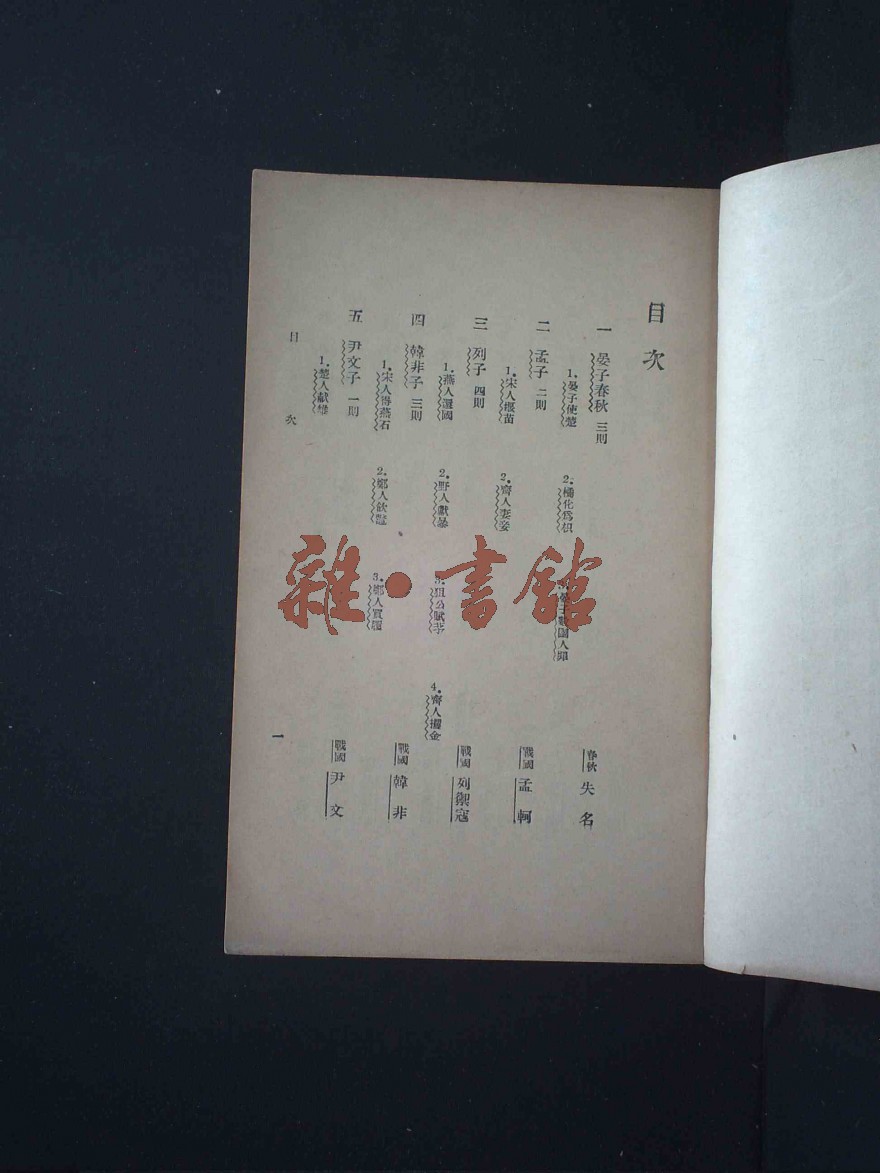 目次
一 晏子春秋 三則 春秋 失名
1.晏子使楚 2.橘化爲枳
二 孟子 二則 戰國 孟軻
1.宋人揠苗 2.齊人妻妾
三 列子 四則 戰國 列禦寇
1.燕人還國 2.野人獻曝 3.狙公賦芧 4.齊人攫金
四 韓非子 三則 戰國 韓非
1.宋人得燕石 2.鄭人飲 3.鄭人買履
五 尹文子 一則 戰國 尹文
1.楚人獻雉
目次
一
雜·書館